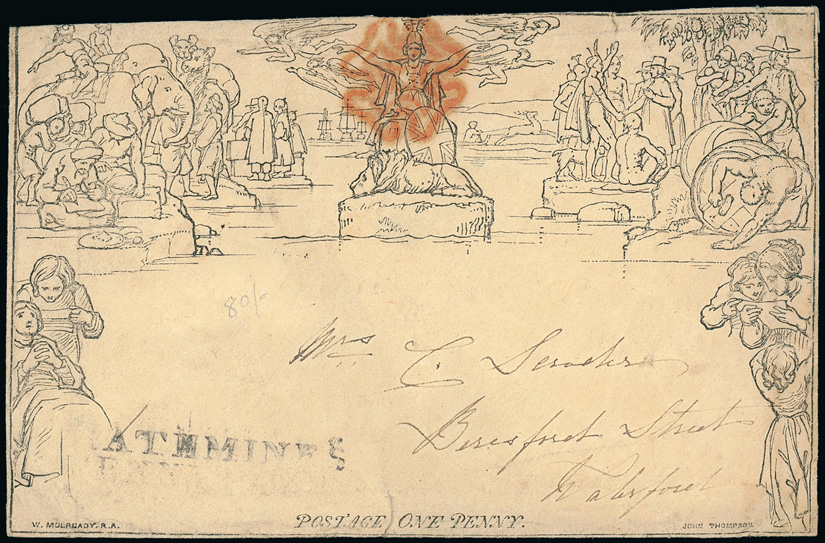 80/-
Mrs C. 
Beresford Street
Waterford
RATHMINES
W. MULREADY. R.A.
POSTAGE ONE PENNY.
JOHN THOMPSON